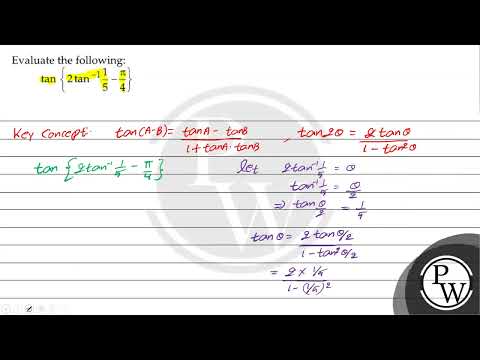 Evaluate the following:
tan {2 tan⁻¹ 1/5 − π/4}
Key Concept: tan(A-B) = (tanA - tanB)/(1 + tanA·tanB) , tan2θ = (2 tanθ)/(1 - tan²θ)
tan {2tan⁻¹ 1/5 - π/4} let 2tan⁻¹ 1/5 = θ
tan⁻¹ 1/5 = θ/2
⇒ tan θ/2 = 1/5
tanθ = (2 tan θ/2)/(1 - tan² θ/2)
= (2 × 1/5)/(1 - (1/5)²)
PW
PW